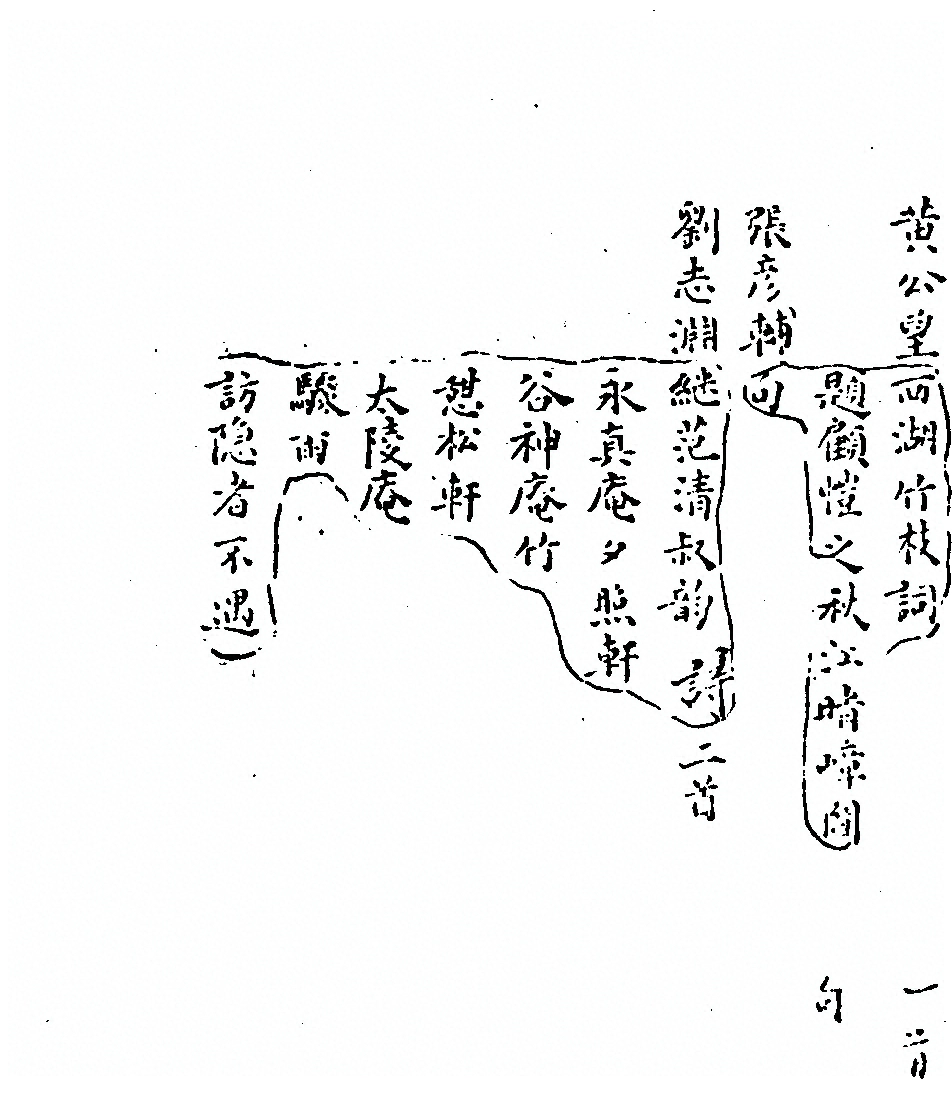 黄公望西湖竹枝詞 一首
題顧愷之秋江晴嶂圖 句
張彦輔句
劉志淵継范清叔韵 詩二首
永真庵夕照軒
谷神庵竹
憇松軒
太陵庵
驟雨
訪隐者不遇